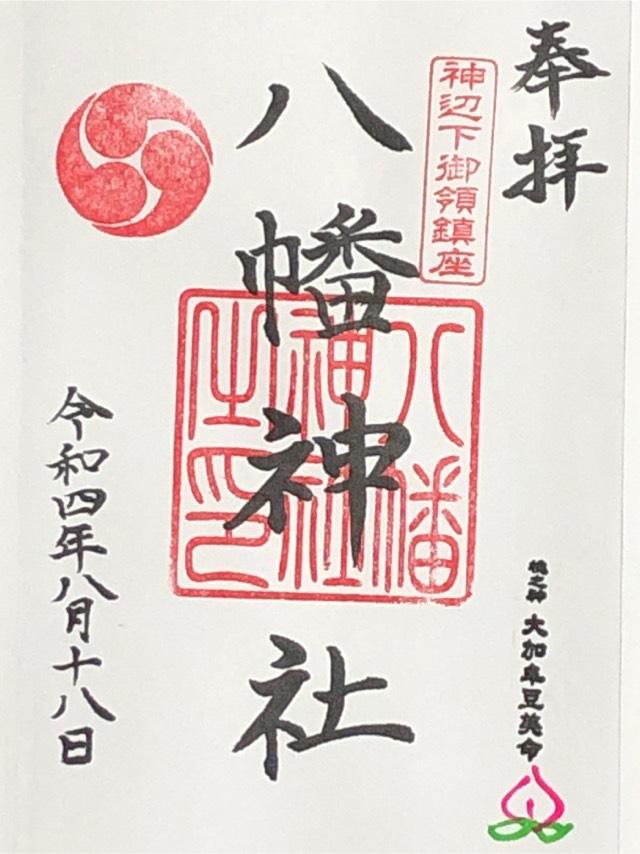 奉拝
神辺下御領鎮座
八幡神社
八幡
神社
之印
桃之神 大加牟豆美命
令和四年八月十八日